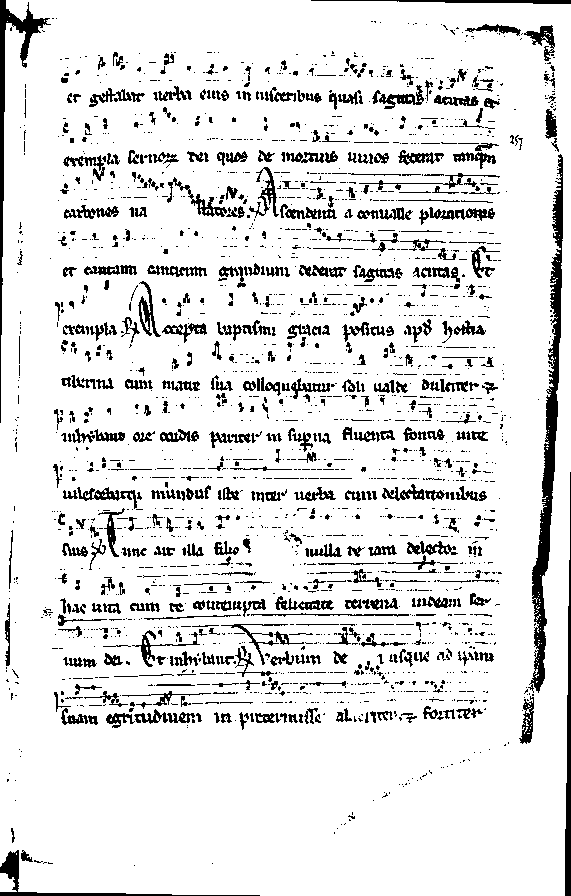 et gestabat uerba eius in uisceribus quasi sagittas acutas et
257
exempla seruorum dei quos de mortuis uiuos fecerat
carbones ua statores. Ascendenti a conualle plorationis
et cantanti canticum graduum dederat sagittas acutas. Et
exempla. Accepta baptismi gracia positus apud hostia
tiberina cum matre sua colloquebatur soli ualde dulciter
inhyabant ore cordis pariter in superna fluenta fontis uite
uilescebatque mundus iste inter uerba cum delectationibus
suis Tunc ait illa filio nulla re iam delector in
hac uita cum te contempta felicitate terrena uideam ser
uum dei. Et inhyabant. Verbum de usque ad
suam egritudinem in pretermisse alacriter fortiter